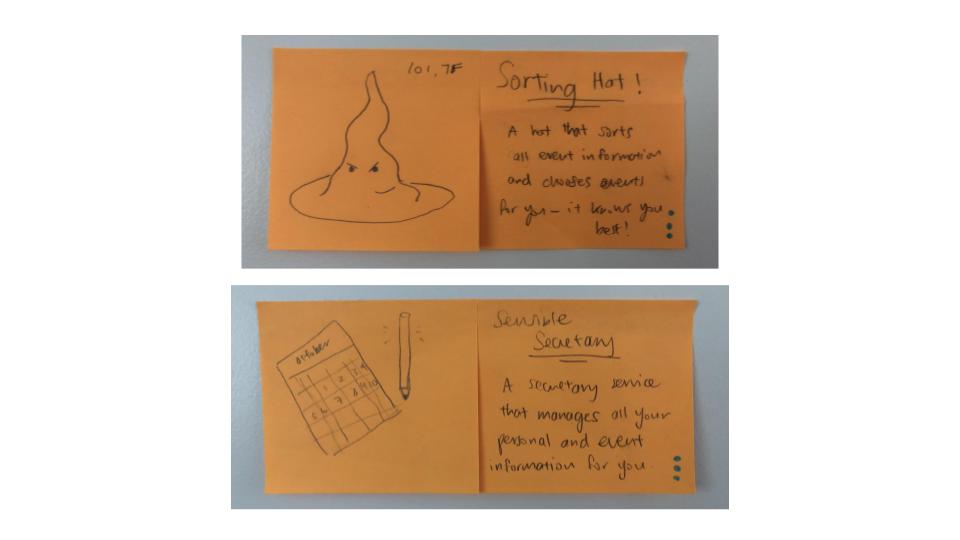 101, 7F
Sorting Hat!
A hat that sorts
all event information
and chooses events
for you – it knows you
best!
October
1 2 3 4
5 6 7 8 9 10
Sensible
Secretary
A secretary service
that manages all your
personal and event
information for you.